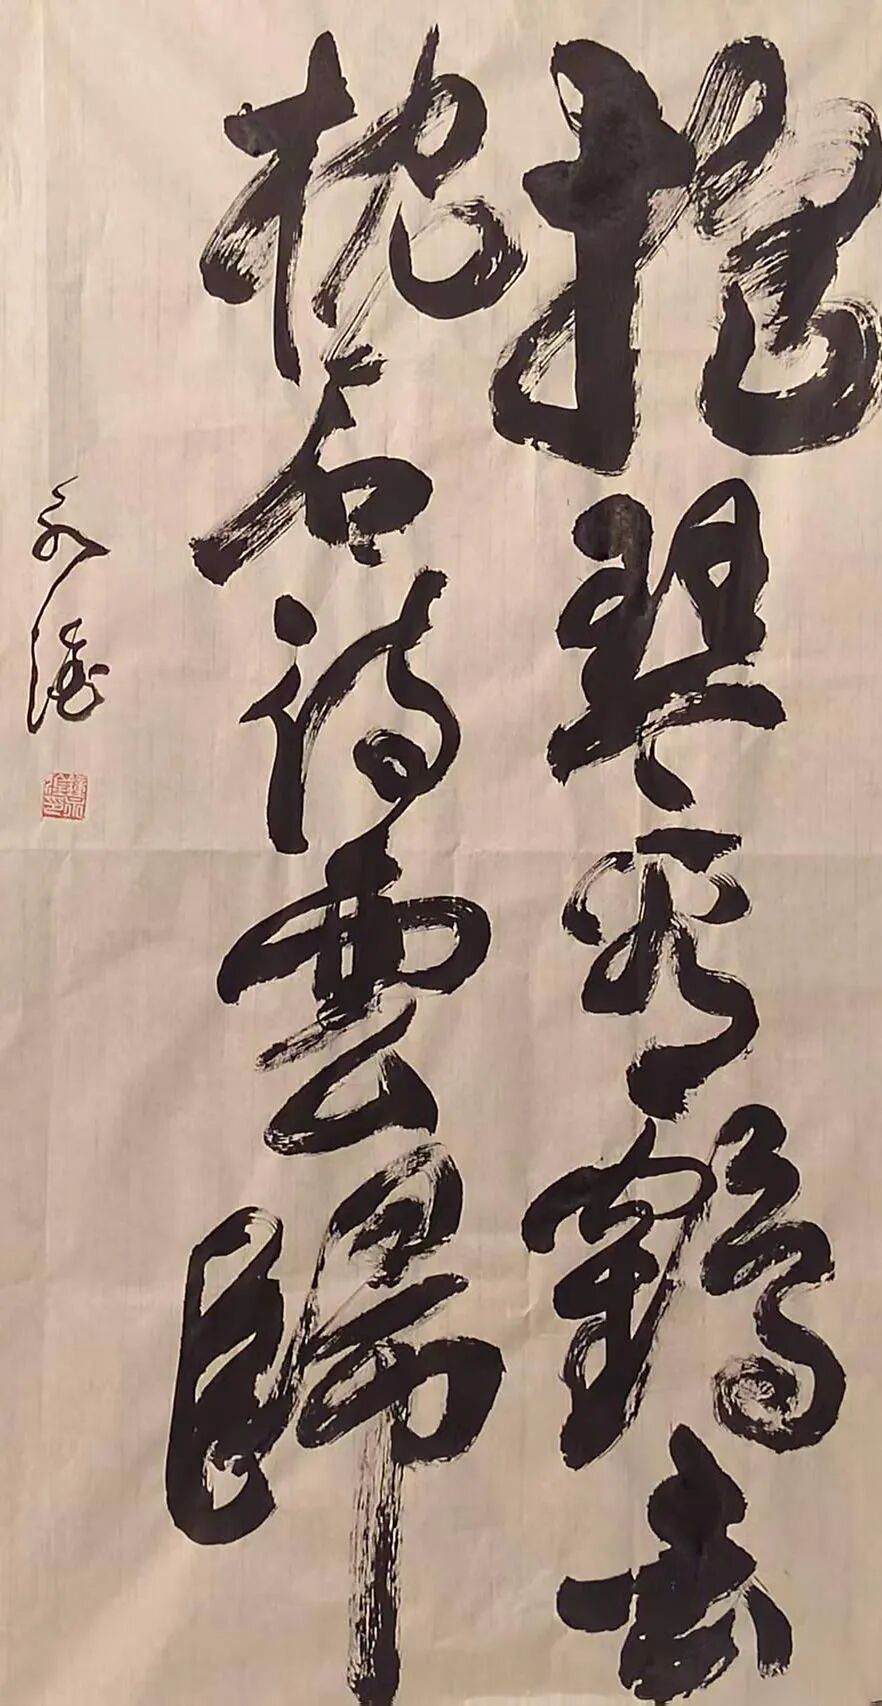 抱琴看鶴去
枕石待雲歸
永